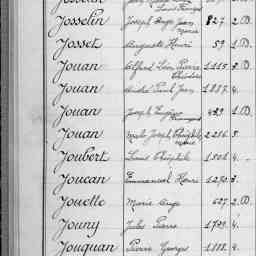 Josselin Joseph Ange Jean Marie 827. 2 D.
Josset Auguste Henri 59 1 D.
Jouan Alfred Léon Pierre Théodore 1115. 3 D.
Jouan André Paul Jean 1887. 4.
Jouan Joseph Eugène 429 1 D.
Jouan Malo Joseph Théophile Marie 2256. 5.
Joubert Louis Théophile 1501 4.
Joucan Emmanuel Henri 1270. 3.
Jouette Marie Ange 627. 2 D.
Jouny Jules Pierre 1709. 4.
Jouquan Pierre Georges 1888. 4.